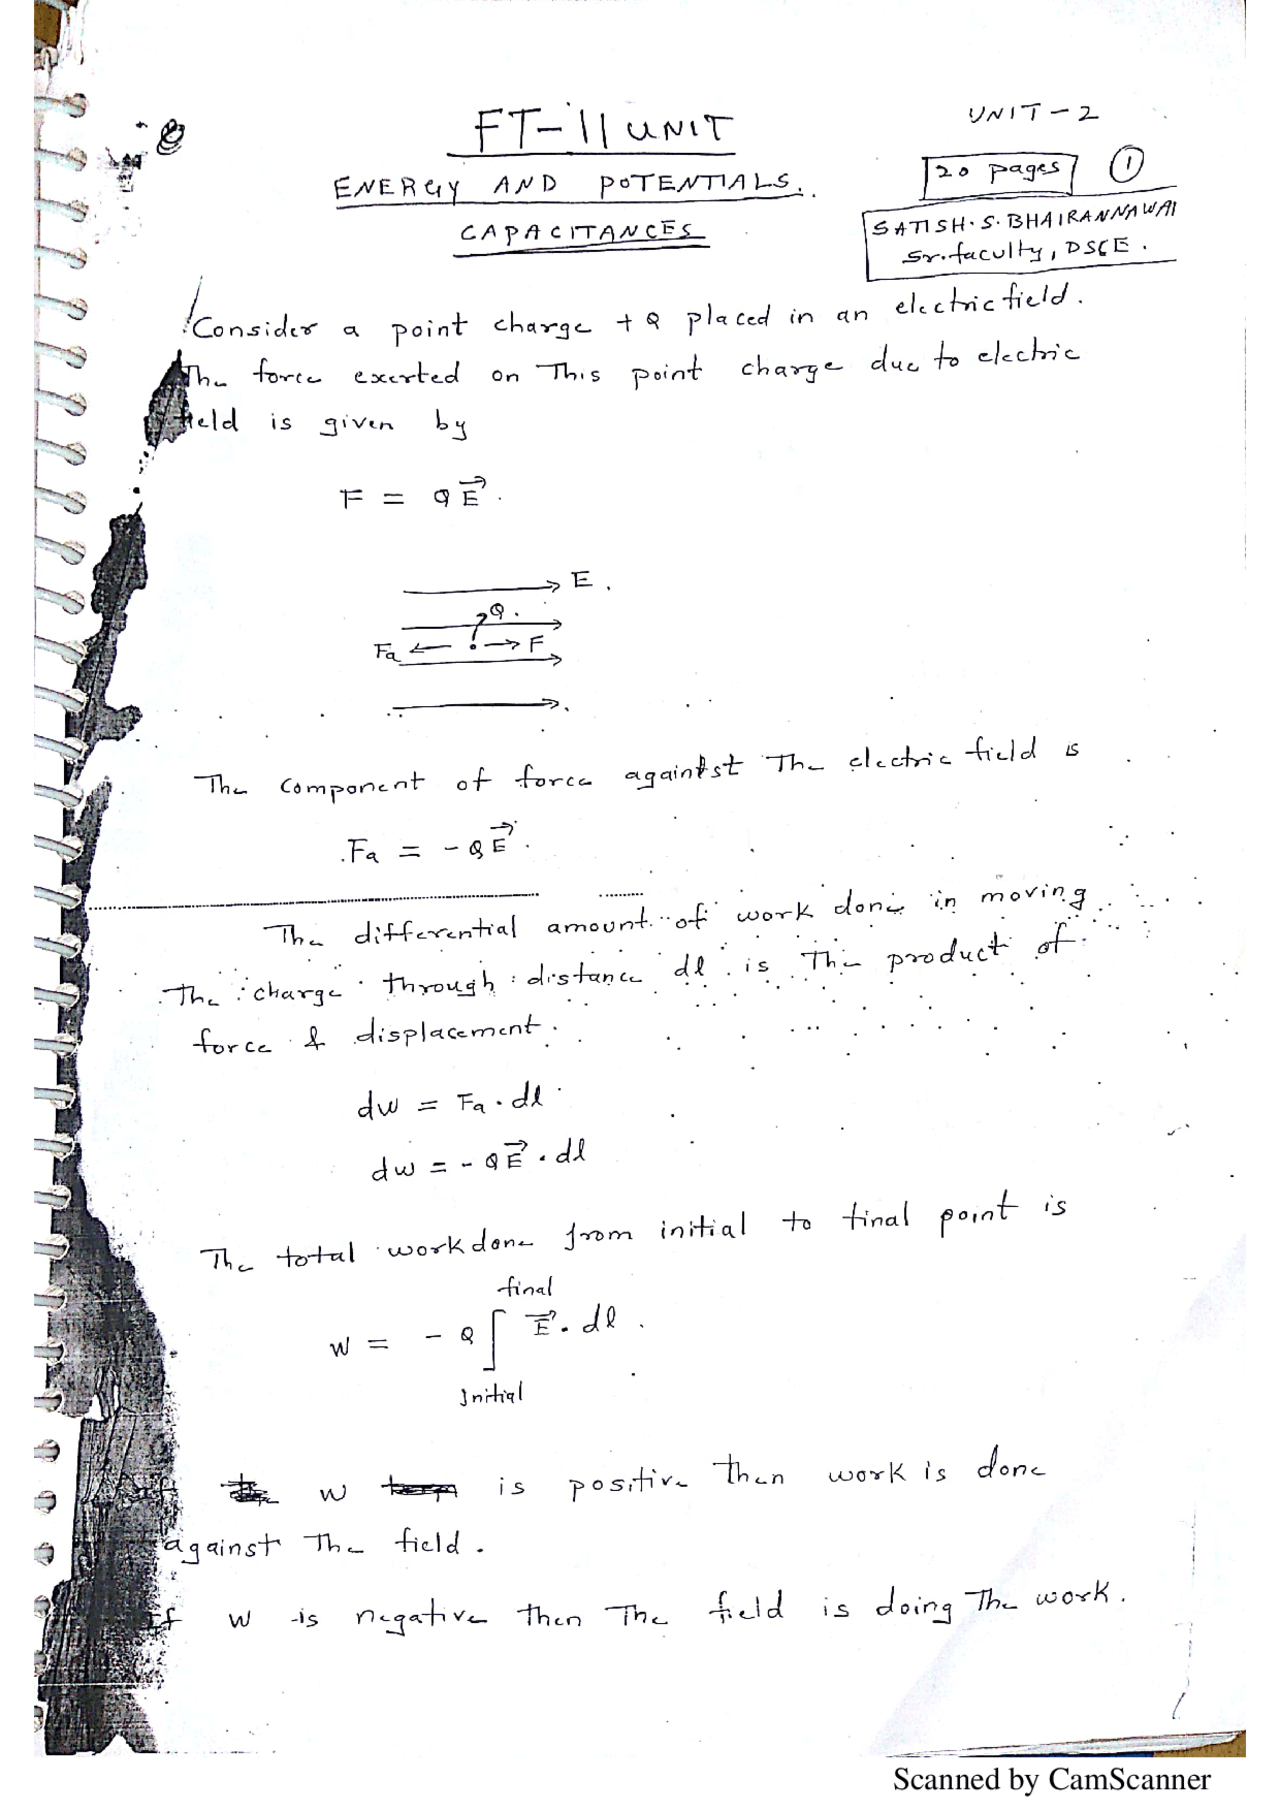 FT-II UNIT
UNIT-2
20 pages 1
ENERGY AND POTENTIALS.
CAPACITANCES
SATISH.S.BHAIRANNAWAI
Sr.faculty, DSCE.
Consider a point charge +Q placed in an electric field.
The force exerted on This point charge due to electric
field is given by
F = QE⃗.
E.
Q.
Fa F
The component of force against The electric field is
Fa = -QE⃗.
The differential amount of work done in moving
The charge through distance dl is The product of
force & displacement.
dw = Fa . dl
dw = - QE⃗ . dl
The total workdone from initial to final point is
final
W = - Q∫ E⃗ . dl.
Initial
If W is positive then work is done
against The field.
If W is negative then The field is doing The work.
Scanned by CamScanner